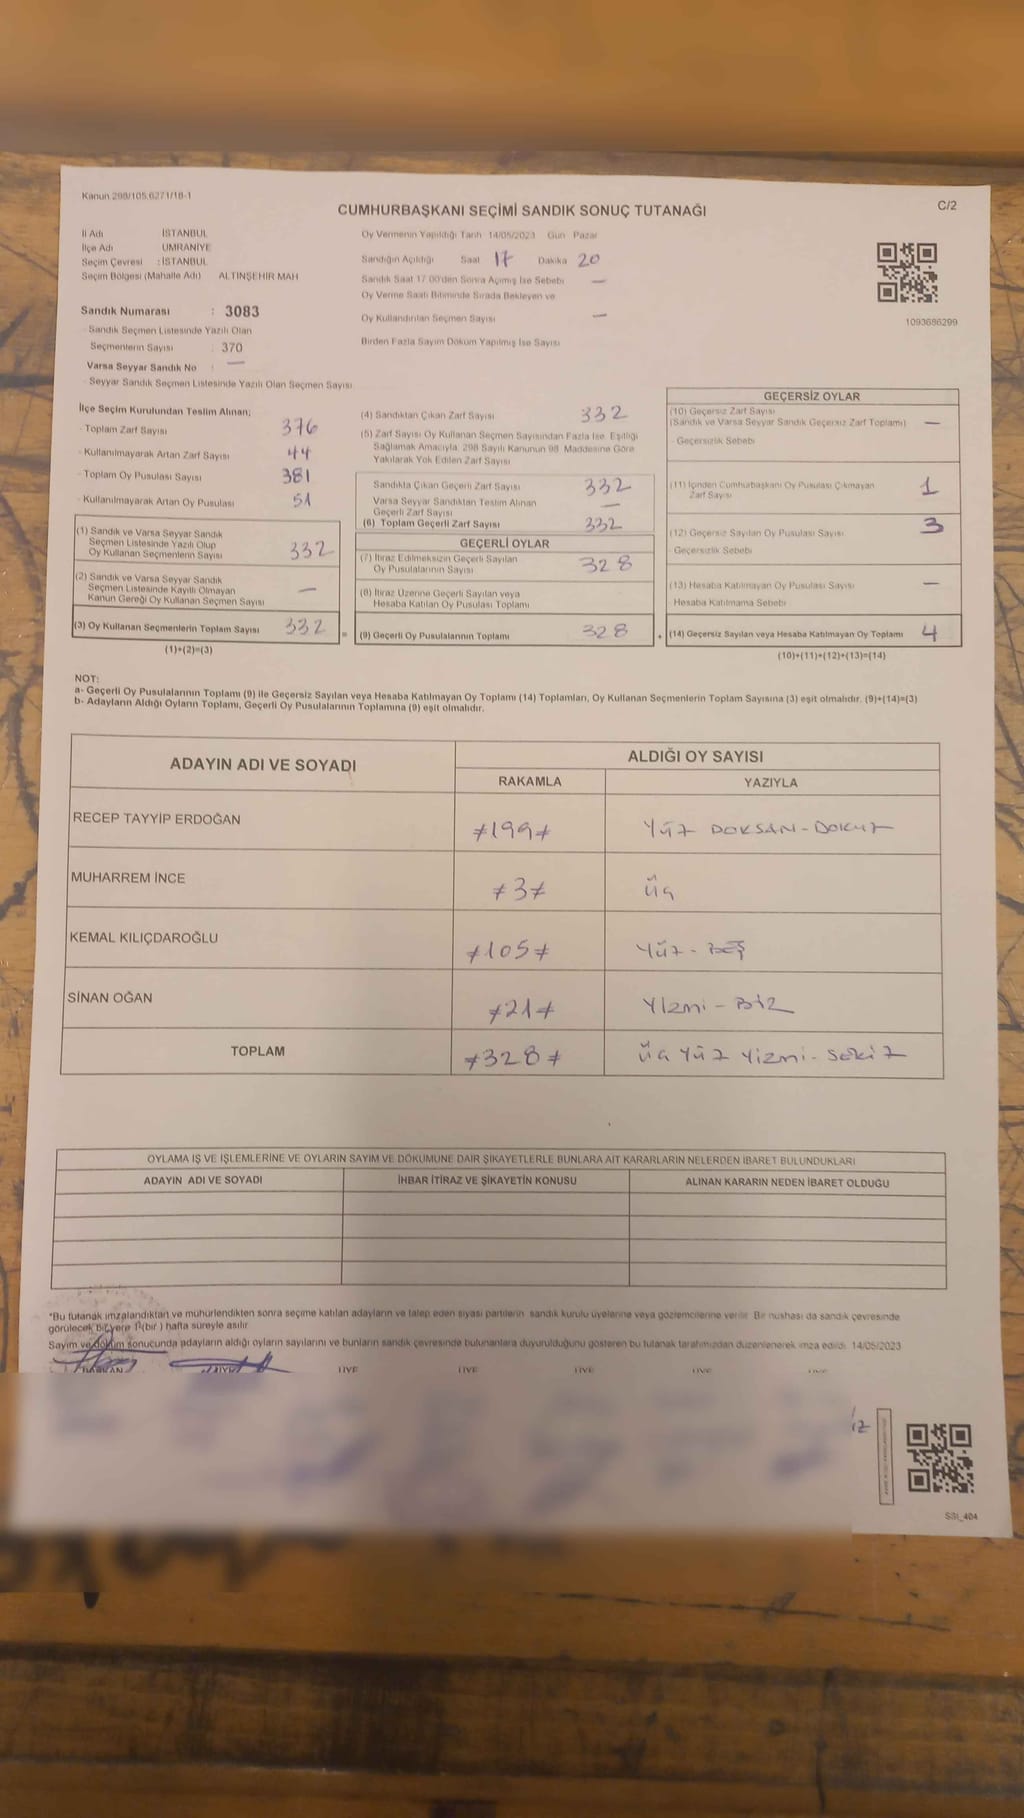 Kanun 298/105.6271/18-1
C/2
CUMHURBAŞKANI SEÇİMİ SANDIK SONUÇ TUTANAĞI
İl Adı İSTANBUL
İlçe Adı ÜMRANİYE
Seçim Çevresi : İSTANBUL
Seçim Bölgesi (Mahalle Adı) ALTINŞEHİR MAH
Sandık Numarası : 3083
Sandık Seçmen Listesinde Yazılı Olan
Seçmenlerin Sayısı : 370
Varsa Seyyar Sandık No : —
Seyyar Sandık Seçmen Listesinde Yazılı Olan Seçmen Sayısı
Oy Vermenin Yapıldığı Tarih 14/05/2023 Gün Pazar
Sandığın Açıldığı Saat 17 Dakika 20
Sandık Saat 17.00'den Sonra Açılmış İse Sebebi —
Oy Verme Saati Bitiminde Sırada Bekleyen ve
Oy Kullandırılan Seçmen Sayısı —
Birden Fazla Sayım Döküm Yapılmış İse Sayısı
1093686299
İlçe Seçim Kurulundan Teslim Alınan;
- Toplam Zarf Sayısı 376
- Kullanılmayarak Artan Zarf Sayısı 44
- Toplam Oy Pusulası Sayısı 381
- Kullanılmayarak Artan Oy Pusulası 51
(1) Sandık ve Varsa Seyyar Sandık
Seçmen Listesinde Yazılı Olup
Oy Kullanan Seçmenlerin Sayısı 332
(2) Sandık ve Varsa Seyyar Sandık
Seçmen Listesinde Kayıtlı Olmayan
Kanun Gereği Oy Kullanan Seçmen Sayısı —
(3) Oy Kullanan Seçmenlerin Toplam Sayısı 332
(1)+(2)=(3)
(4) Sandıktan Çıkan Zarf Sayısı 332
(5) Zarf Sayısı Oy Kullanan Seçmen Sayısından Fazla İse, Eşitliği
Sağlamak Amacıyla, 298 Sayılı Kanunun 98. Maddesine Göre
Yakılarak Yok Edilen Zarf Sayısı
Sandıkta Çıkan Geçerli Zarf Sayısı 332
Varsa Seyyar Sandıktan Teslim Alınan
Geçerli Zarf Sayısı —
(6) Toplam Geçerli Zarf Sayısı 332
GEÇERLİ OYLAR
(7) İtiraz Edilmeksizin Geçerli Sayılan
Oy Pusulalarının Sayısı 328
(8) İtiraz Üzerine Geçerli Sayılan veya
Hesaba Katılan Oy Pusulası Toplamı
= (9) Geçerli Oy Pusulalarının Toplamı 328
GEÇERSİZ OYLAR
(10) Geçersiz Zarf Sayısı
(Sandık ve Varsa Seyyar Sandık Geçersiz Zarf Toplamı) —
- Geçersizlik Sebebi
(11) İçinden Cumhurbaşkanı Oy Pusulası Çıkmayan
Zarf Sayısı 1
(12) Geçersiz Sayılan Oy Pusulası Sayısı 3
- Geçersizlik Sebebi
(13) Hesaba Katılmayan Oy Pusulası Sayısı —
Hesaba Katılmama Sebebi
+ (14) Geçersiz Sayılan veya Hesaba Katılmayan Oy Toplamı 4
(10)+(11)+(12)+(13)=(14)
NOT:
a- Geçerli Oy Pusulalarının Toplamı (9) ile Geçersiz Sayılan veya Hesaba Katılmayan Oy Toplamı (14) Toplamları, Oy Kullanan Seçmenlerin Toplam Sayısına (3) eşit olmalıdır. (9)+(14)=(3)
b- Adayların Aldığı Oyların Toplamı, Geçerli Oy Pusulalarının Toplamına (9) eşit olmalıdır.
ADAYIN ADI VE SOYADI
ALDIĞI OY SAYISI
RAKAMLA YAZIYLA
RECEP TAYYİP ERDOĞAN ≠199≠ Yüz DOKSAN-DOKUZ
MUHARREM İNCE ≠3≠ üç
KEMAL KILIÇDAROĞLU ≠105≠ Yüz-BEŞ
SİNAN OĞAN ≠21≠ Yirmi-Bir
TOPLAM ≠328≠ üç Yüz Yirmi-Sekiz
OYLAMA İŞ VE İŞLEMLERİNE VE OYLARIN SAYIM VE DÖKÜMÜNE DAİR ŞİKAYETLERLE BUNLARA AİT KARARLARIN NELERDEN İBARET BULUNDUKLARI
ADAYIN ADI VE SOYADI İHBAR İTİRAZ VE ŞİKAYETİN KONUSU ALINAN KARARIN NEDEN İBARET OLDUĞU
*Bu tutanak imzalandıktan ve mühürlendikten sonra seçime katılan adayların ve talep eden siyasi partilerin sandık kurulu üyelerine veya gözlemcilerine verilir. Bir nüshası da sandık çevresinde
görülecek bir yere 1(bir ) hafta süreyle asılır.
Sayım ve döküm sonucunda adayların aldığı oyların sayılarını ve bunların sandık çevresinde bulunanlara duyurulduğunu gösteren bu tutanak tarafımızdan düzenlenerek imza edildi. 14/05/2023
BAŞKAN ÜYE ÜYE ÜYE ÜYE
SSI_404